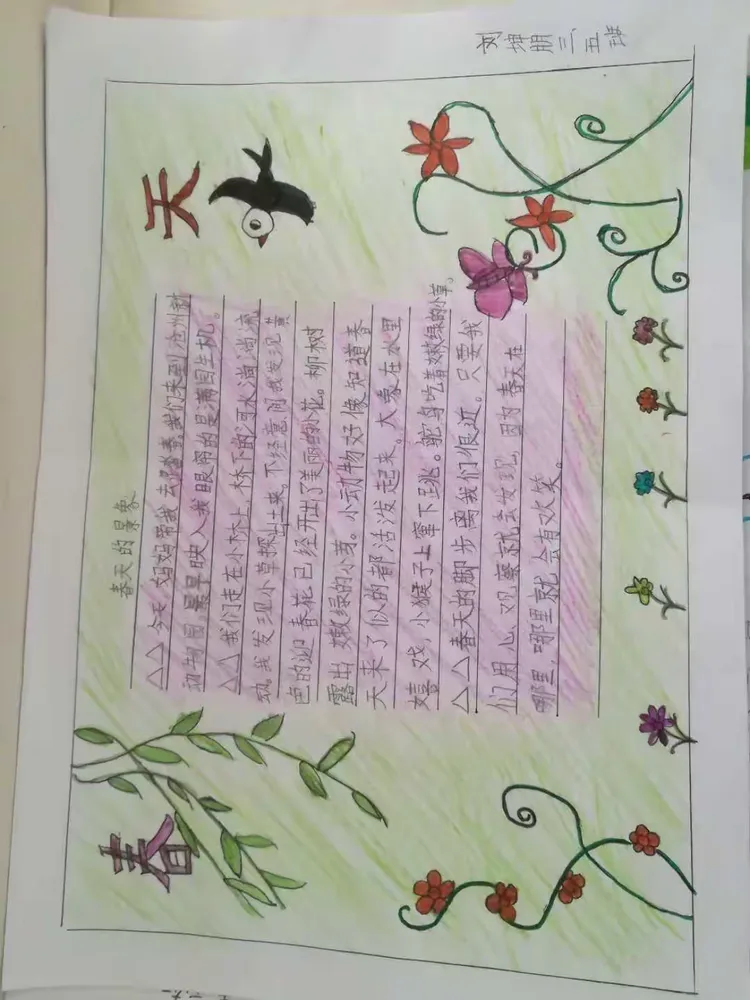 春 天
刘 朋三五班
春天的景象
△△今天,妈妈带我去踏春,我们来到沧州动
动物园,最早映入我眼帘的是满园生机。
△△我们走在小桥上,桥下的河水淌淌流
动。我发现小草探出土来。不经意间我发现黄
色的迎春花已经开出了美丽的小花。柳树
露出嫩绿的小芽。小动物好像知道春
天来了似的都活泼起来。大象在水里
嬉戏,小猴子上窜下跳。鸵鸟吃着嫩绿的小草。
△△春天的脚步离我们很近。只要我
们用心观察就会发现,因为春天在
哪里,哪里就会有欢笑。